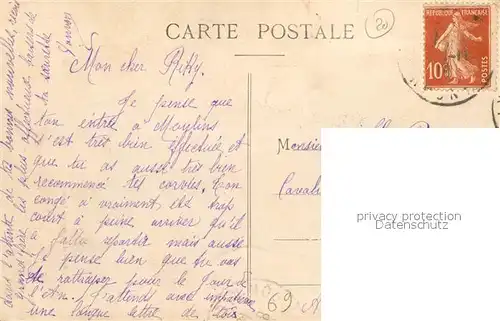 CARTE POSTALE
20
RÉPUBLIQUE FRANÇAISE
10
POSTES
Mon cher
Je pense que
ton entrée à Moulins
s'est très bien effectuée et
que tu as aussi très bien
recommencé tes corvées, ton
congé a vraiment été trop
court à peine arriver qu'il
a fallu repartir mais aussi
je pense bien que tu vas
te rattraper pour le Jour de
l'An. J'attends avec impatience
une longue lettre de toi
dans l'attente de tes bonnes nouvelles,
les plus affectueux baisers de
Monsieur
Caval
privacy protection
Datenschutz
69